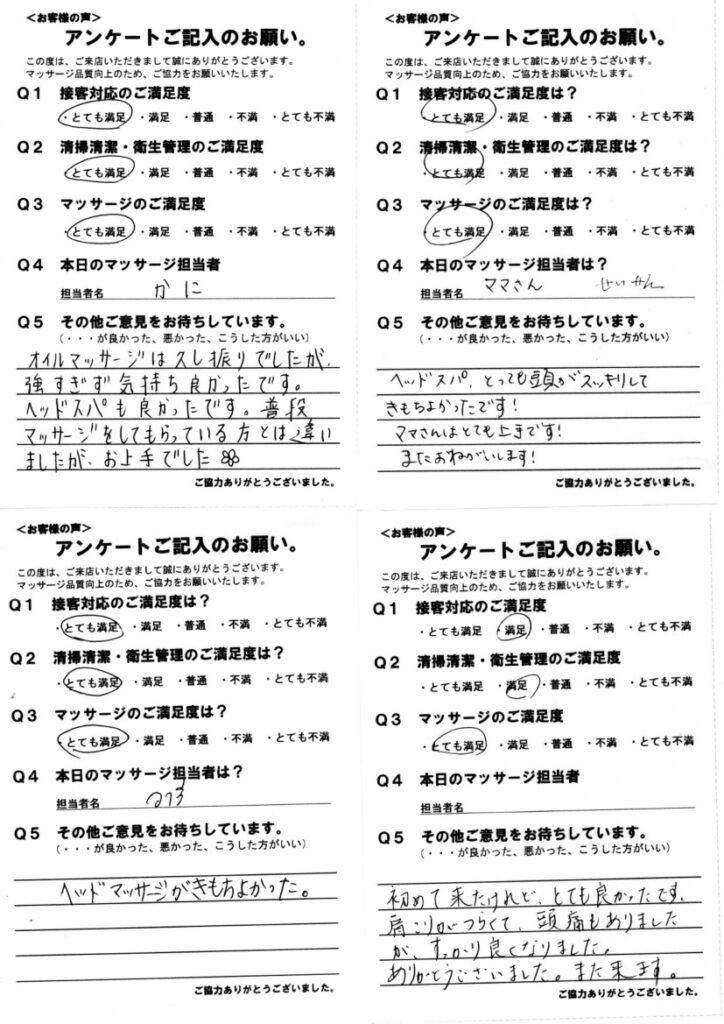 ＜お客様の声＞
アンケートご記入のお願い。
この度は、ご来店いただきまして誠にありがとうございます。
マッサージ品質向上のため、ご協力をお願いいたします。
Q1 接客対応のご満足度
・とても満足 ・満足 ・普通 ・不満 ・とても不満
Q2 清掃清潔・衛生管理のご満足度
・とても満足 ・満足 ・普通 ・不満 ・とても不満
Q3 マッサージのご満足度
・とても満足 ・満足 ・普通 ・不満 ・とても不満
Q4 本日のマッサージ担当者
担当者名 かに
Q5 その他ご意見をお待ちしています。
（・・・が良かった、悪かった、こうした方がいい）
オイルマッサージは久し振りでしたが、
強すぎず気持ち良かったです。
ヘッドスパも良かったです。普段
マッサージをしてもらっている方とは違い
ましたが、お上手でした
ご協力ありがとうございました。
＜お客様の声＞
アンケートご記入のお願い。
この度は、ご来店いただきまして誠にありがとうございます。
マッサージ品質向上のため、ご協力をお願いいたします。
Q1 接客対応のご満足度は？
・とても満足 ・満足 ・普通 ・不満 ・とても不満
Q2 清掃清潔・衛生管理のご満足度は？
・とても満足 ・満足 ・普通 ・不満 ・とても不満
Q3 マッサージのご満足度は？
・とても満足 ・満足 ・普通 ・不満 ・とても不満
Q4 本日のマッサージ担当者は？
担当者名 ママさん
Q5 その他ご意見をお待ちしています。
（・・・が良かった、悪かった、こうした方がいい）
ヘッドスパ、とっても頭がスッキリして
きもちよかったです！
ママさんはとても上手です！
またおねがいします！
ご協力ありがとうございました。
＜お客様の声＞
アンケートご記入のお願い。
この度は、ご来店いただきまして誠にありがとうございます。
マッサージ品質向上のため、ご協力をお願いいたします。
Q1 接客対応のご満足度は？
・とても満足 ・満足 ・普通 ・不満 ・とても不満
Q2 清掃清潔・衛生管理のご満足度は？
・とても満足 ・満足 ・普通 ・不満 ・とても不満
Q3 マッサージのご満足度は？
・とても満足 ・満足 ・普通 ・不満 ・とても不満
Q4 本日のマッサージ担当者は？
担当者名
Q5 その他ご意見をお待ちしています。
（・・・が良かった、悪かった、こうした方がいい）
ヘッドマッサージがきもちよかった。
ご協力ありがとうございました。
＜お客様の声＞
アンケートご記入のお願い。
この度は、ご来店いただきまして誠にありがとうございます。
マッサージ品質向上のため、ご協力をお願いいたします。
Q1 接客対応のご満足度
・とても満足 ・満足 ・普通 ・不満 ・とても不満
Q2 清掃清潔・衛生管理のご満足度
・とても満足 ・満足 ・普通 ・不満 ・とても不満
Q3 マッサージのご満足度
・とても満足 ・満足 ・普通 ・不満 ・とても不満
Q4 本日のマッサージ担当者
担当者名
Q5 その他ご意見をお待ちしています。
（・・・が良かった、悪かった、こうした方がいい）
初めて来たけれど、とても良かったです。
肩こりがつらくて、頭痛もありました
が、すっかり良くなりました。
ありがとうございました。また来ます。
ご協力ありがとうございました。